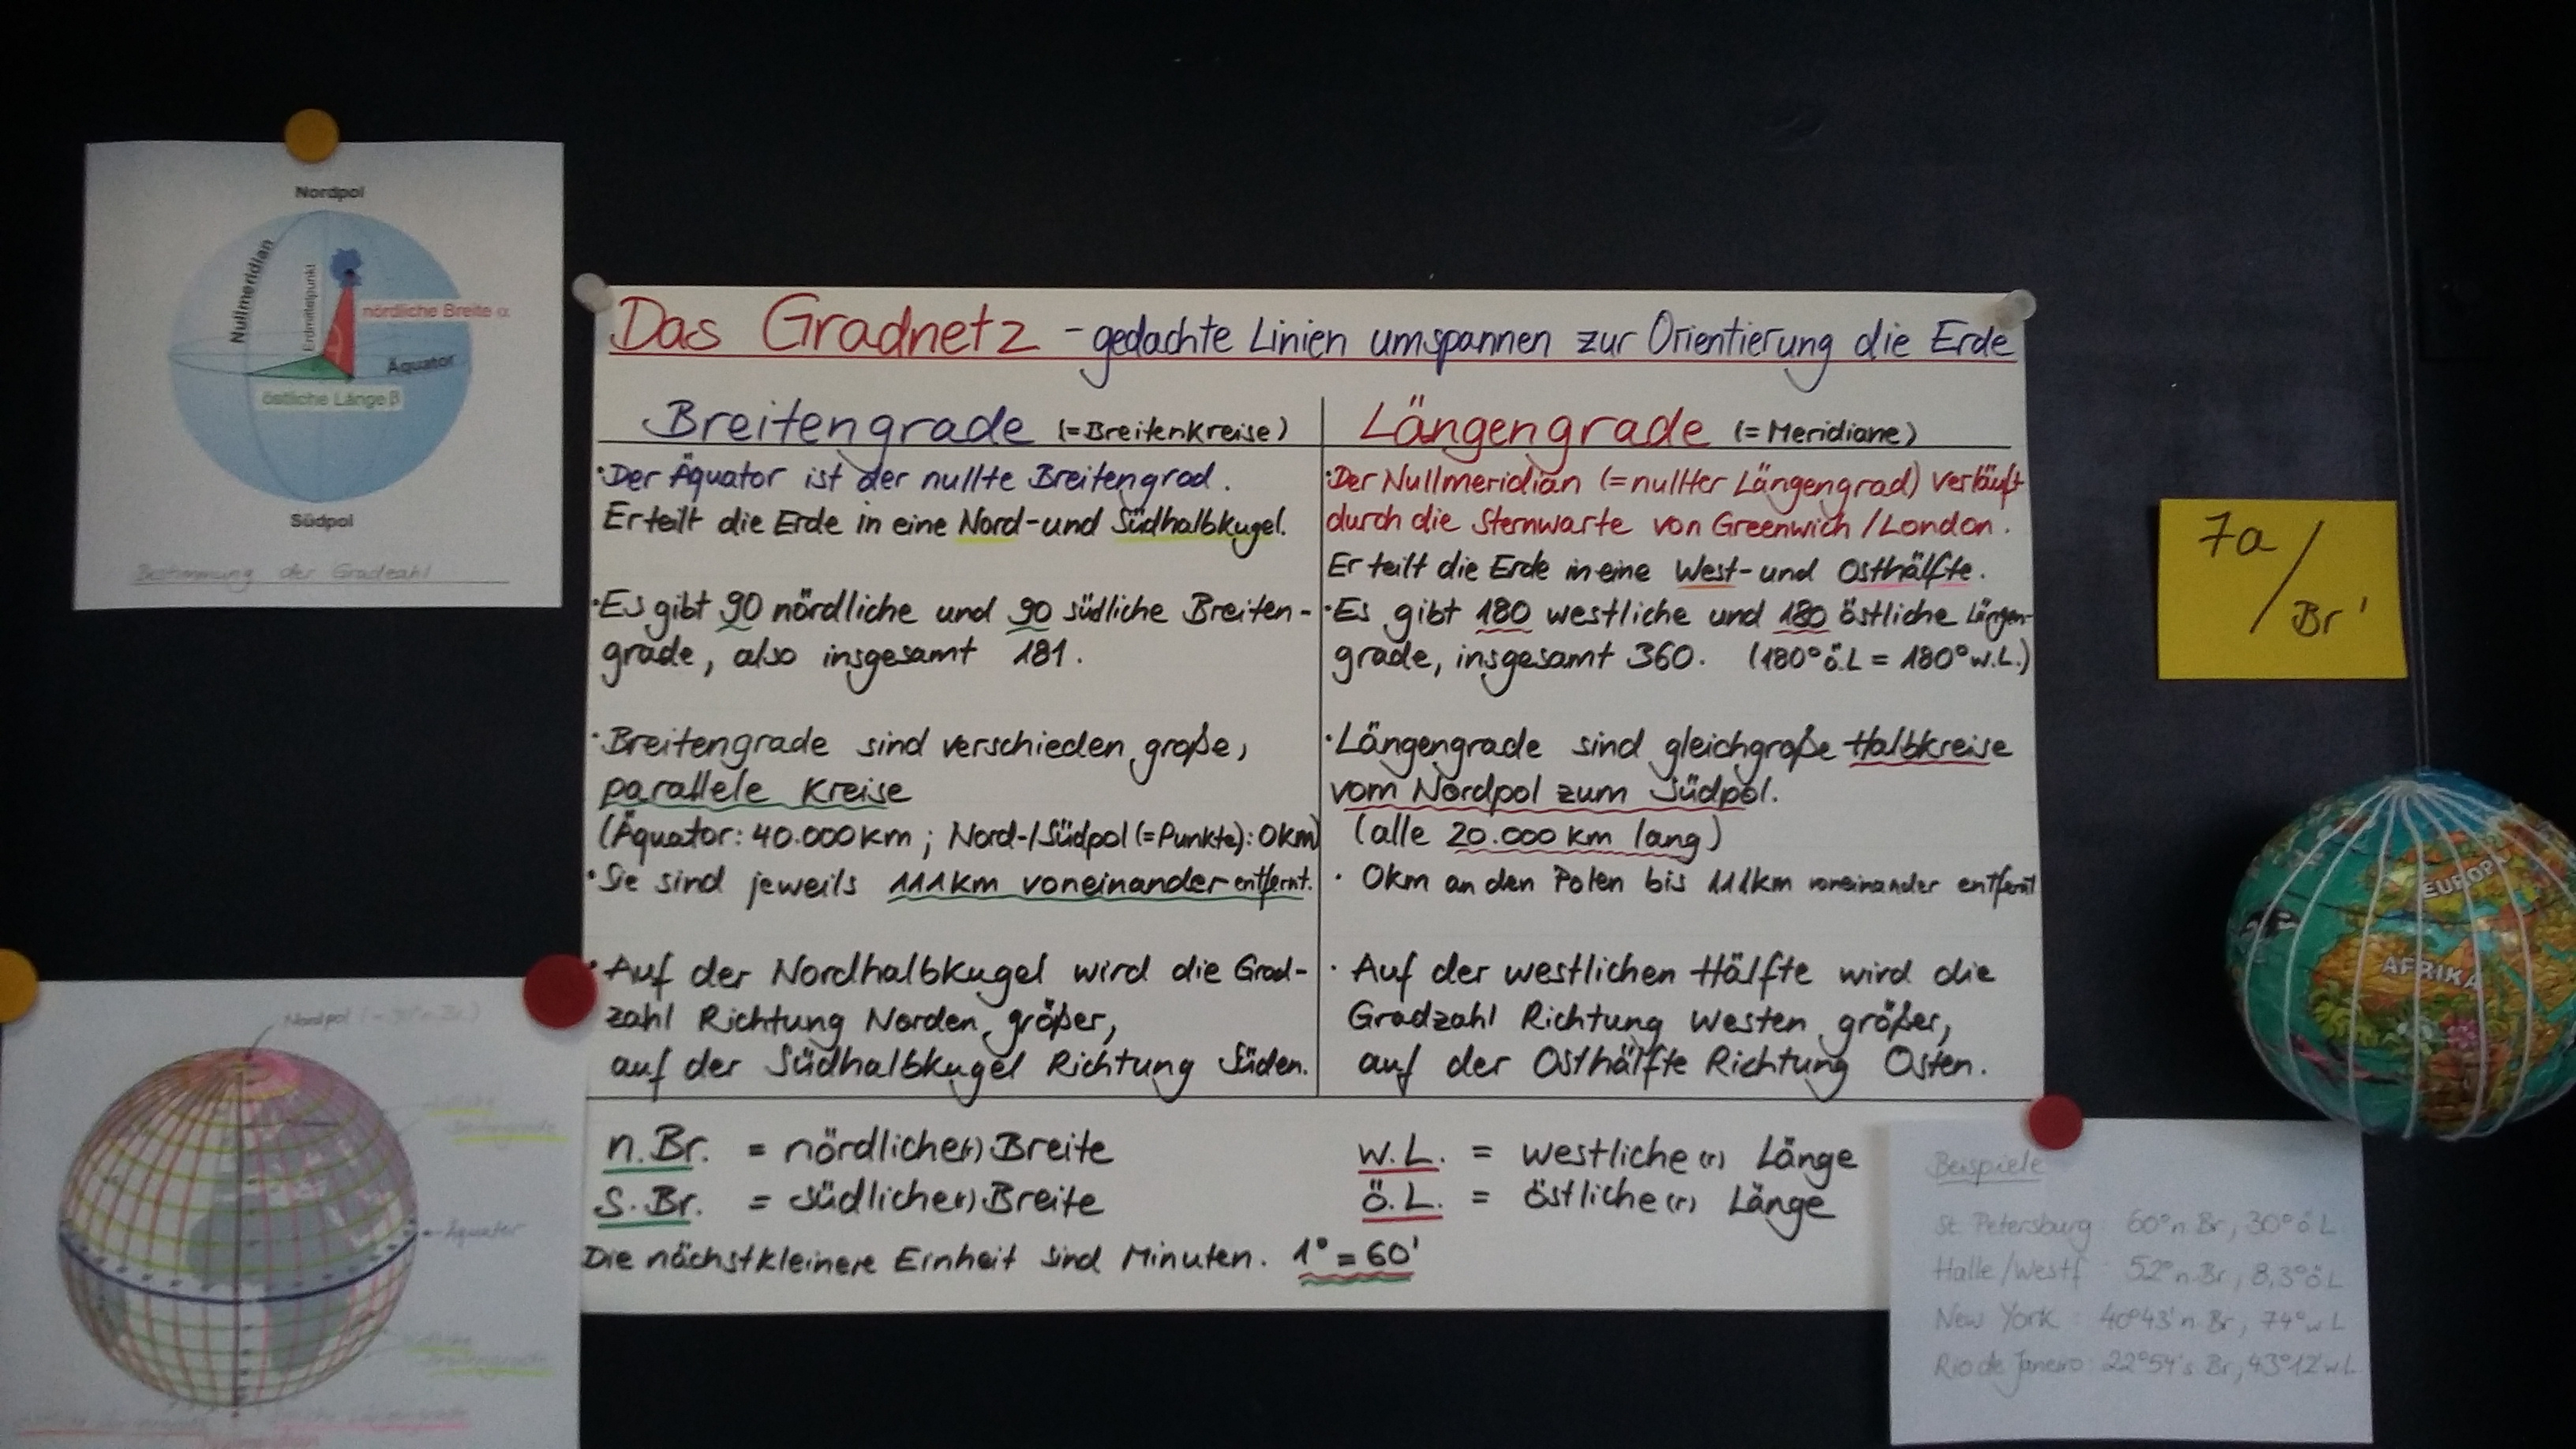 Nordpol
Nullmeridian
Erdmittelpunkt
nördliche Breite α
Äquator
östliche Länge β
Südpol
Bestimmung der Gradzahl
Das Gradnetz - gedachte Linien umspannen zur Orientierung die Erde
Breitengrade (=Breitenkreise)
·Der Äquator ist der nullte Breitengrad.
Er teilt die Erde in eine Nord- und Südhalbkugel.
·Es gibt 90 nördliche und 90 südliche Breiten-
grade, also insgesamt 181.
·Breitengrade sind verschieden große,
parallele Kreise
(Äquator: 40.000 km ; Nord-/Südpol (=Punkte): 0km)
·Sie sind jeweils 111km voneinander entfernt.
·Auf der Nordhalbkugel wird die Grad-
zahl Richtung Norden größer,
auf der Südhalbkugel Richtung Süden.
Längengrade (=Meridiane)
·Der Nullmeridian (=nullter Längengrad) verläuft
durch die Sternwarte von Greenwich /London.
Er teilt die Erde in eine West- und Osthälfte.
·Es gibt 180 westliche und 180 östliche Längen-
grade, insgesamt 360. (180° ö.L = 180° w.L.)
·Längengrade sind gleichgroße Halbkreise
vom Nordpol zum Südpol.
(alle 20.000 km lang)
· 0km an den Polen bis 111km voneinander entfernt
· Auf der westlichen Hälfte wird die
Gradzahl Richtung Westen größer,
auf der Osthälfte Richtung Osten.
n.Br. = nördliche(r) Breite
s.Br. = südliche(r) Breite
w.L. = westliche(r) Länge
ö.L. = östliche(r) Länge
Die nächstkleinere Einheit sind Minuten. 1° = 60'
7a/
Br'
EUROPA
AFRIKA
Nordpol
Äquator
Beispiele
St. Petersburg: 60° n Br, 30° ö L
Halle/Westf : 52° n.Br, 8,3° ö L
New York : 40°43' n Br, 74° w L
Rio de Janeiro: 22°54's Br, 43°12' w L